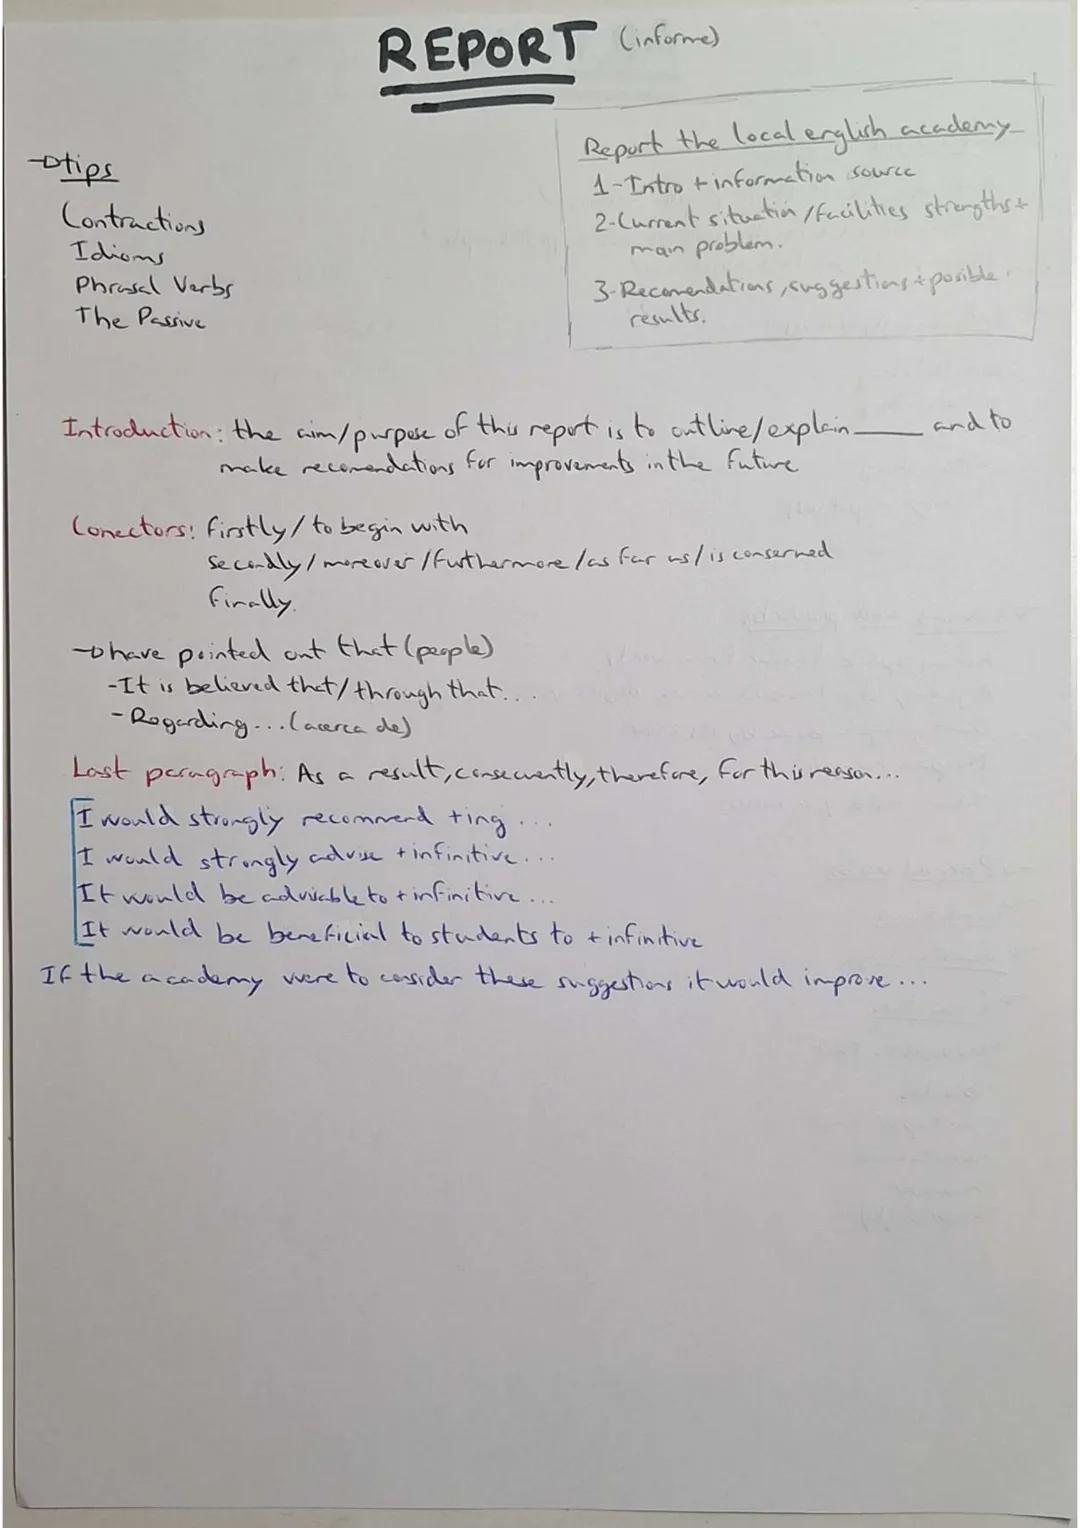 REPORT (informe)
tips
Contractions
Idioms
Phrasal Verbs
The Passive
Report the local english academy
1-Intro + information source
2-Current situation/facilities strengths +
main problem.
3-Recomendations, suggestions + posible
results.
Introduction: the aim/purpose of this report is to outline/explain ____ and to
make recomendations for improvements in the future
Conectors: firstly/to begin with
Secondly/moreover/furthermore/as far us/is conserned
finally.
have pointed out that (people)
-It is believed that/through that...
-Regarding...(acerca de)
Last paragraph: As a result, consecuently, therefore, for this reason...
I would strongly recommend +ing...
I would strongly advise +infinitive...
It would be advisable to +infinitive...
It would be beneficial to students to + infinitive
If the academy were to consider these suggestions it would improve...